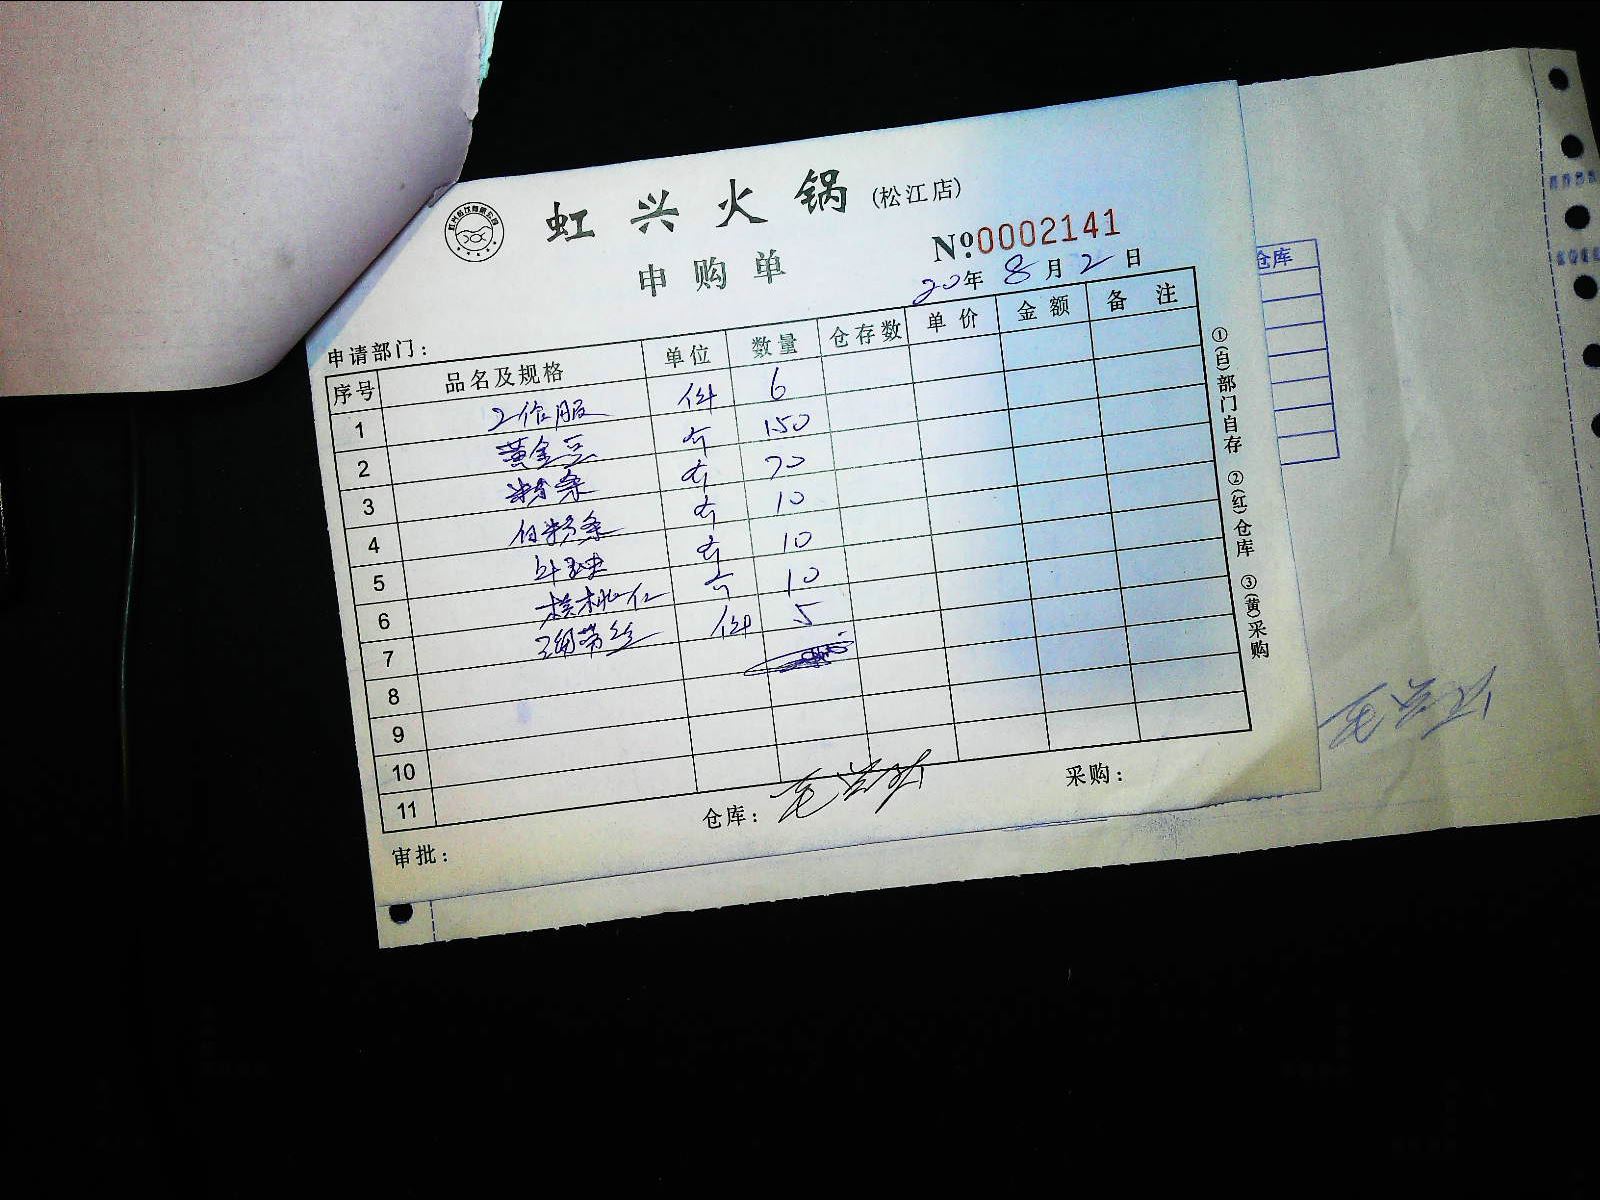 虹兴火锅(松江店)
申购单
№:0002141
20年8月2日
申请部门：
序号 品名及规格 单位 数量 仓存数 单价 金额 备注
1 工作服 件 6
2 黄金豆 斤 150
3 粉条 斤 70
4 白粉条 斤 10
5 斤 10
6 核桃仁 斤 10
7 海带丝 件 5
8
9
10
11
审批： 仓库： 采购：
①(白)部门自存 ②(红)仓库 ③(黄)采购
仓库